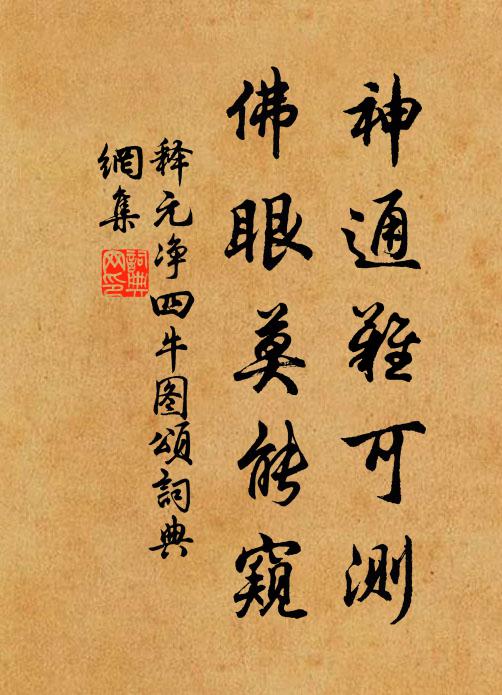 神通難可測
佛眼莫能窺
释元净四牛图頌詞典
網集
詞典
网印